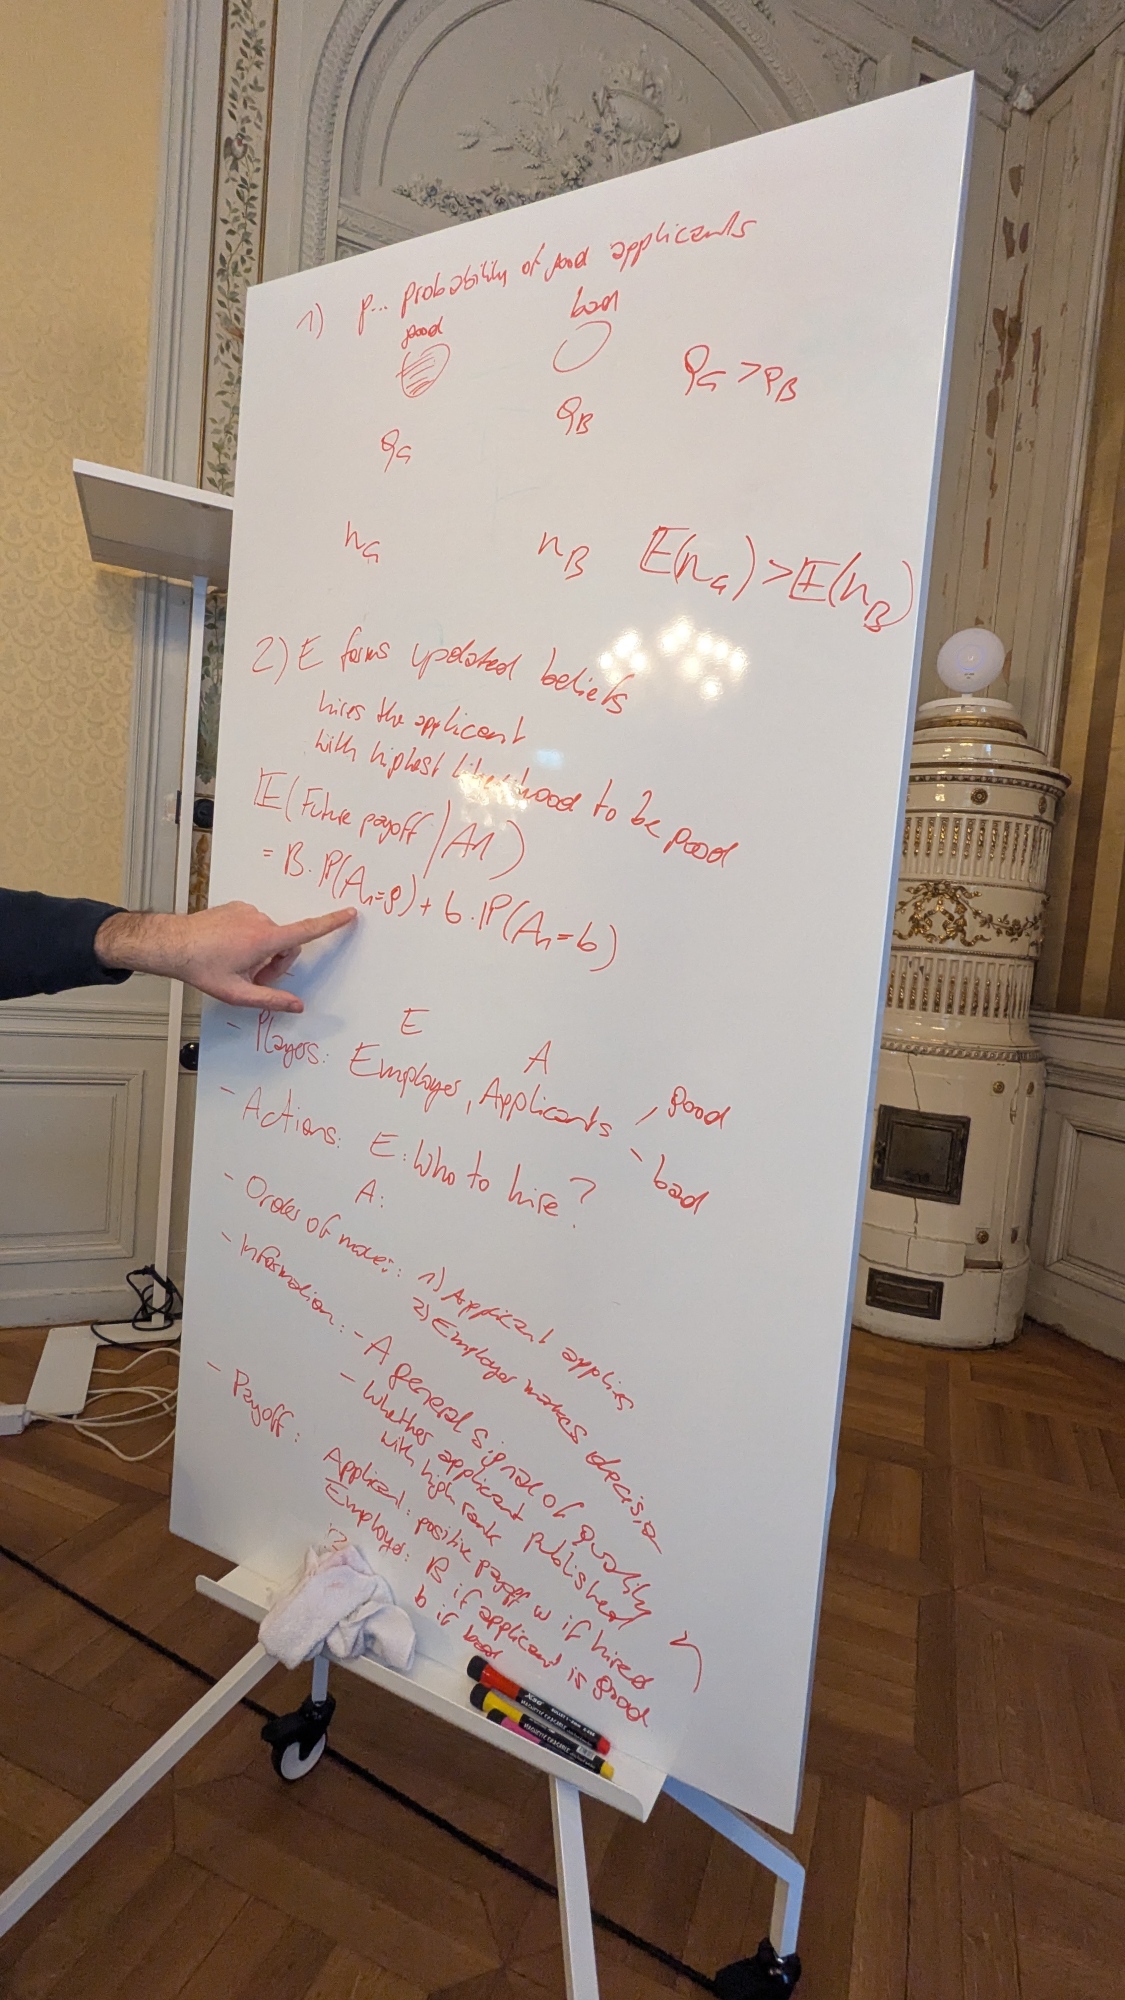 1) p... probability of good applicants
good bad
q_G q_B q_G > q_B
n_G n_B E(n_G) > E(n_B)
2) E forms updated beliefs
hires the applicant
with highest likelihood to be good
E(Future payoff | A1)
= B · P(A_1=g) + b · P(A_1=b)
E A
- Players: Employer, Applicants good
bad
- Actions: E: Who to hire?
A:
- Order of moves: 1) Applicant applies
2) Employer makes decision
- Information: - A general signal of quality
- Whether applicant published
with high rank
- Payoff: Applicant: positive payoff w if hired
Employer: B if applicant is good
b if bad